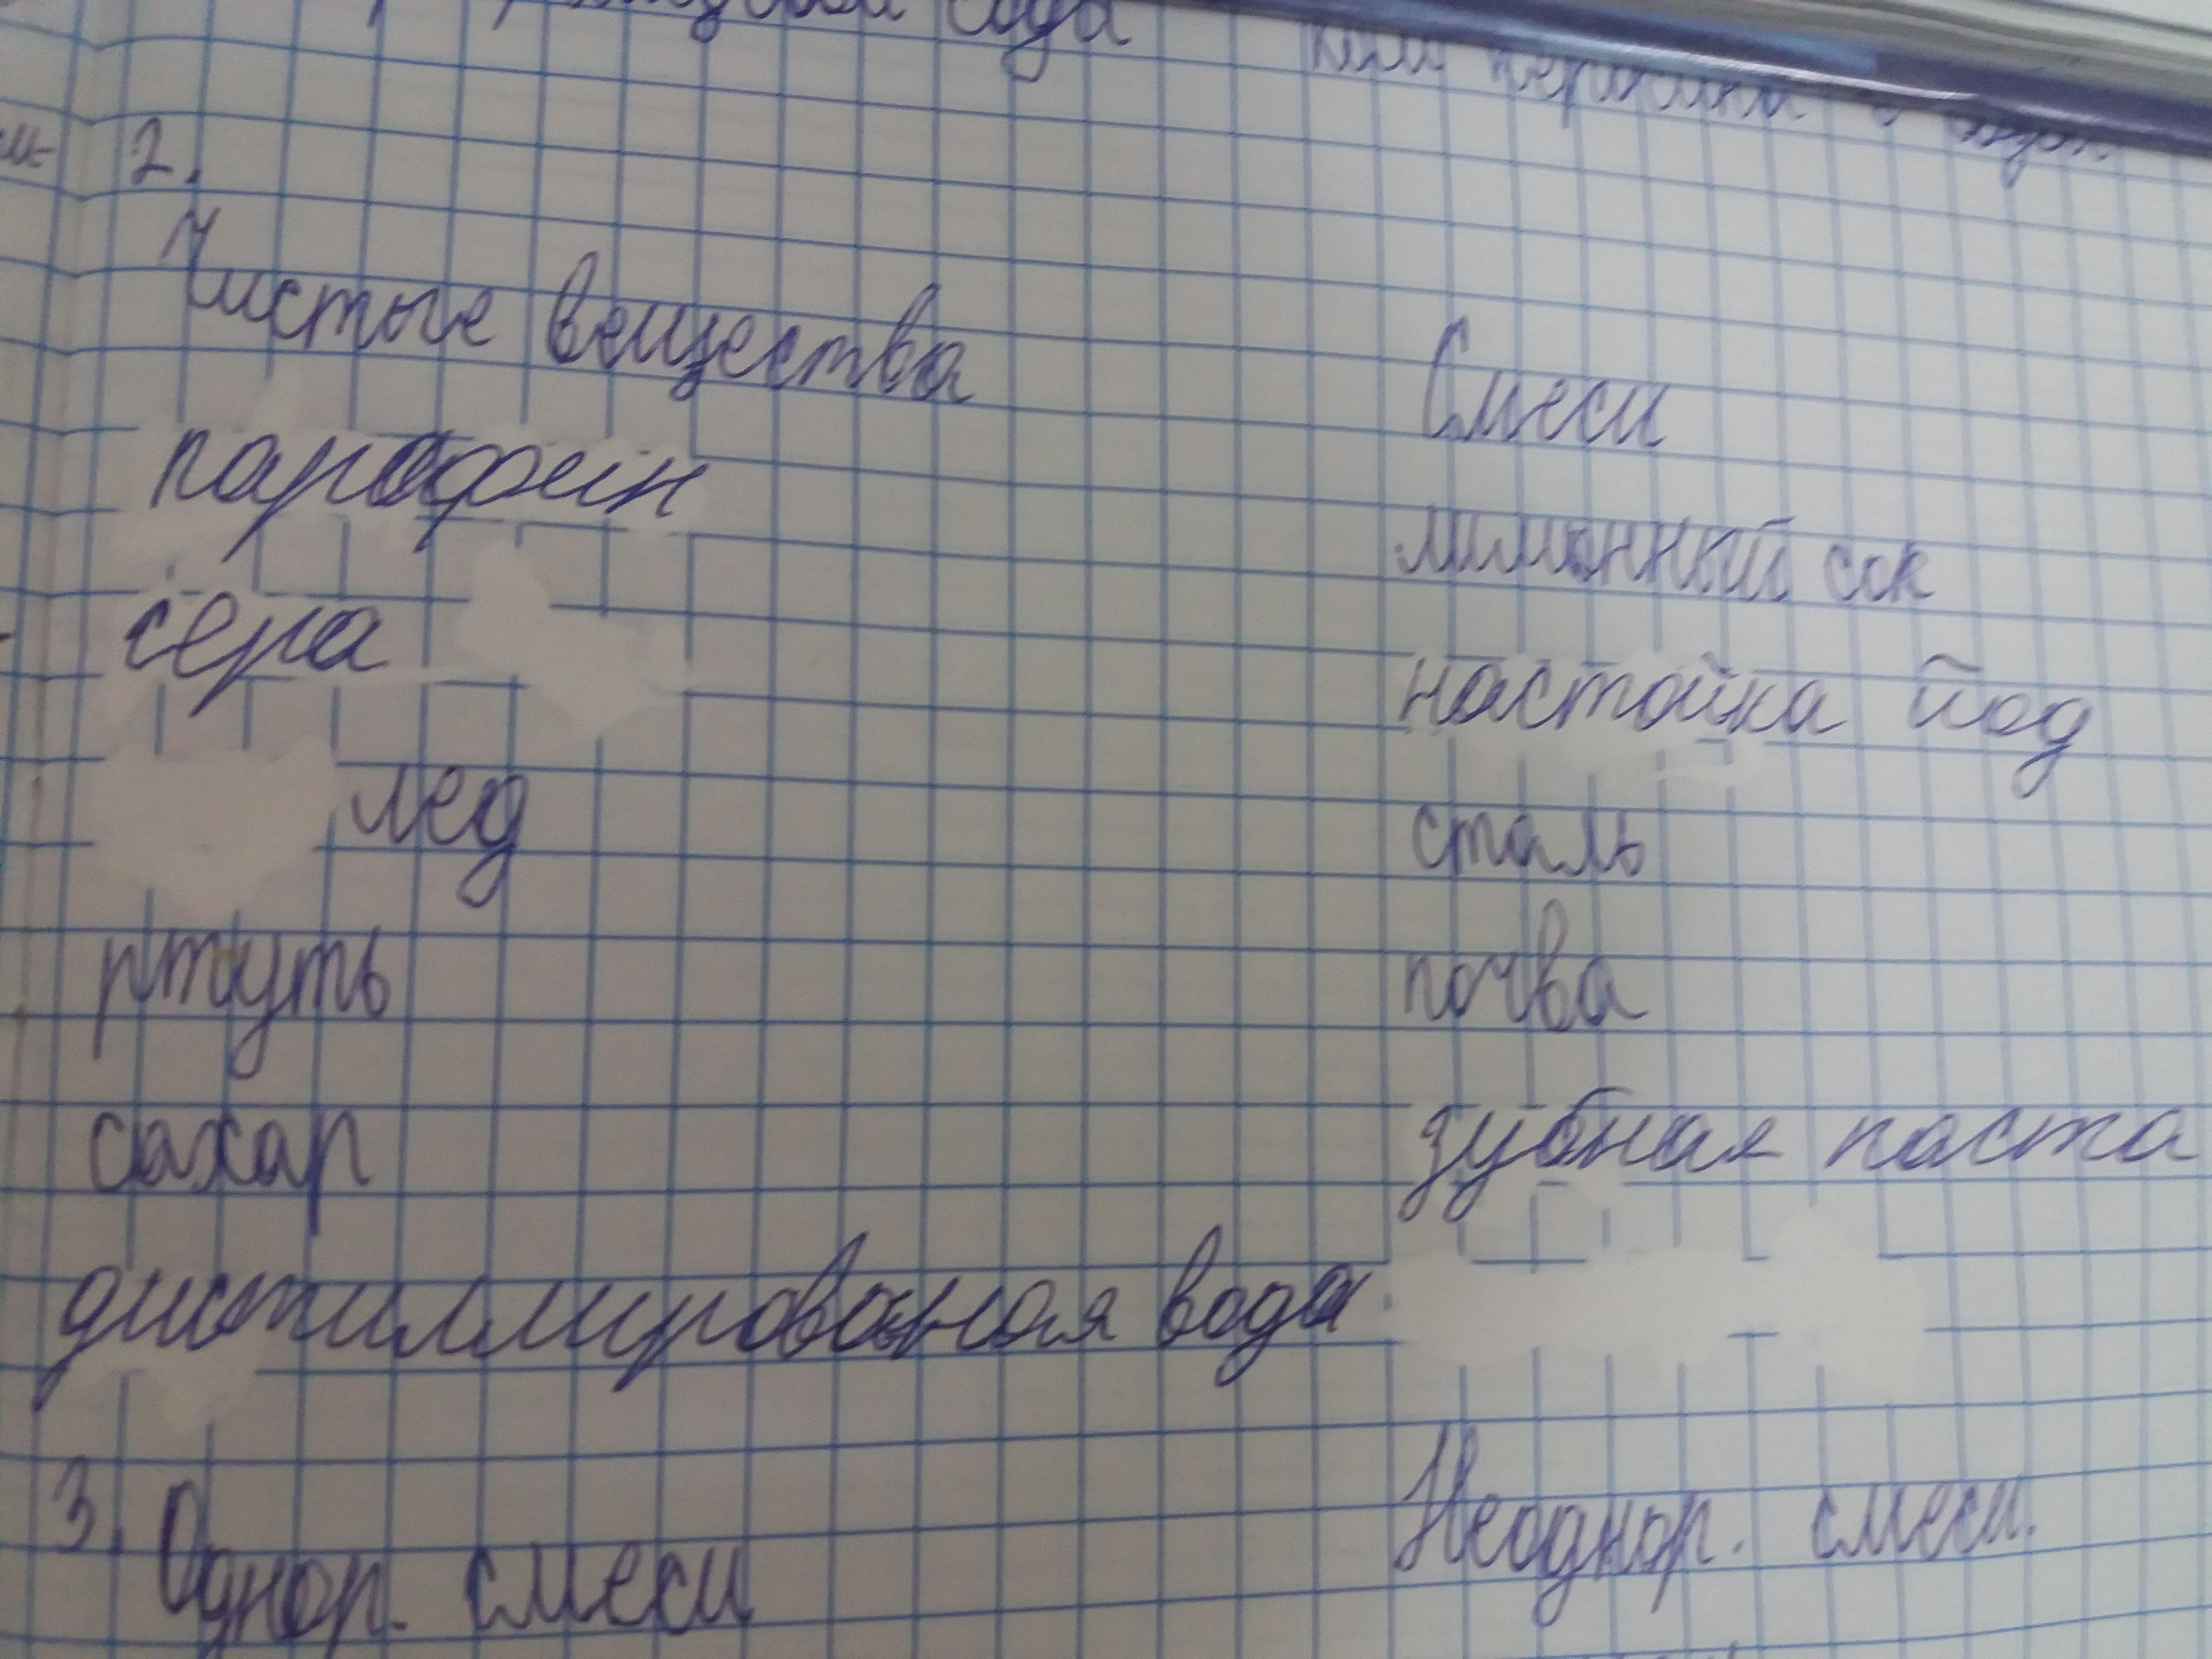 сода
2.
Чистые вещества
Смеси
парафин
лимонный сок
сера
настойка йод
лед
сталь
ртуть
почва
сахар
зубная паста
дистиллированая вода
3. Однор. смеси
Неоднор. смеси.